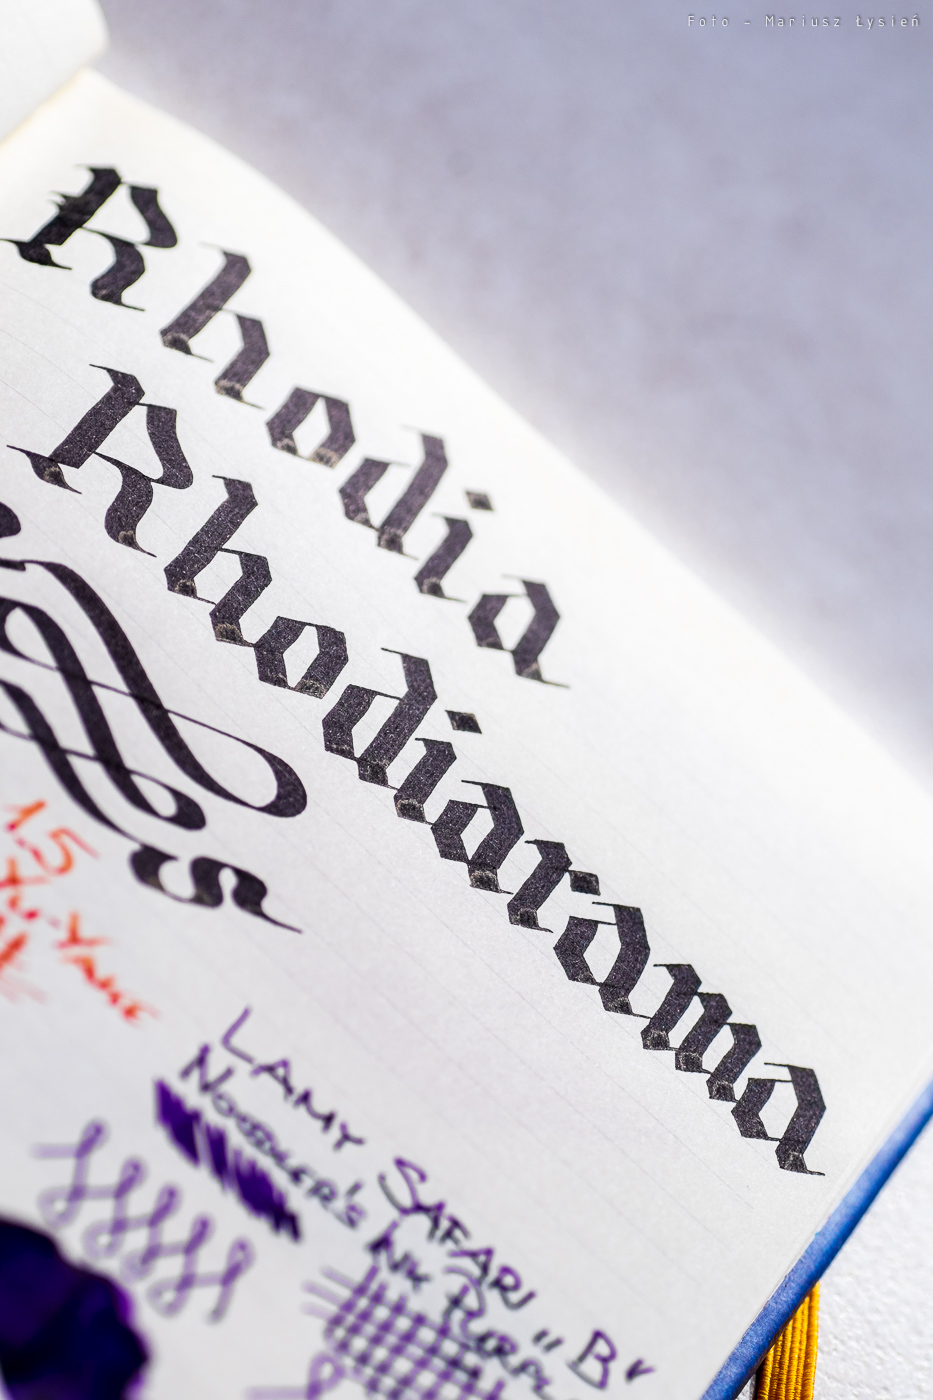 Foto - Mariusz Łysień
Rhodia
Rhodiarama
1.5
LAMY SAFARI "B"
NOODLER'S INK PURPLE